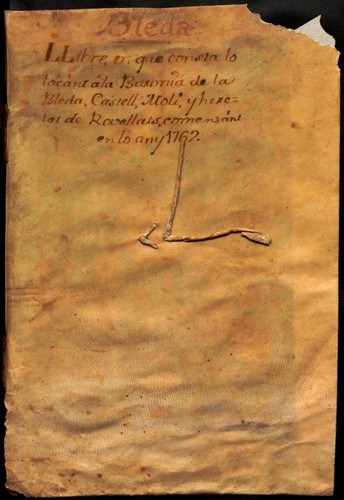 Bleda
LLibre, en que consta lo
tocant á la Baronia de la
Bleda, Castell, Molí, y here-
tat de Rovellats, comensant
en lo any 1762.